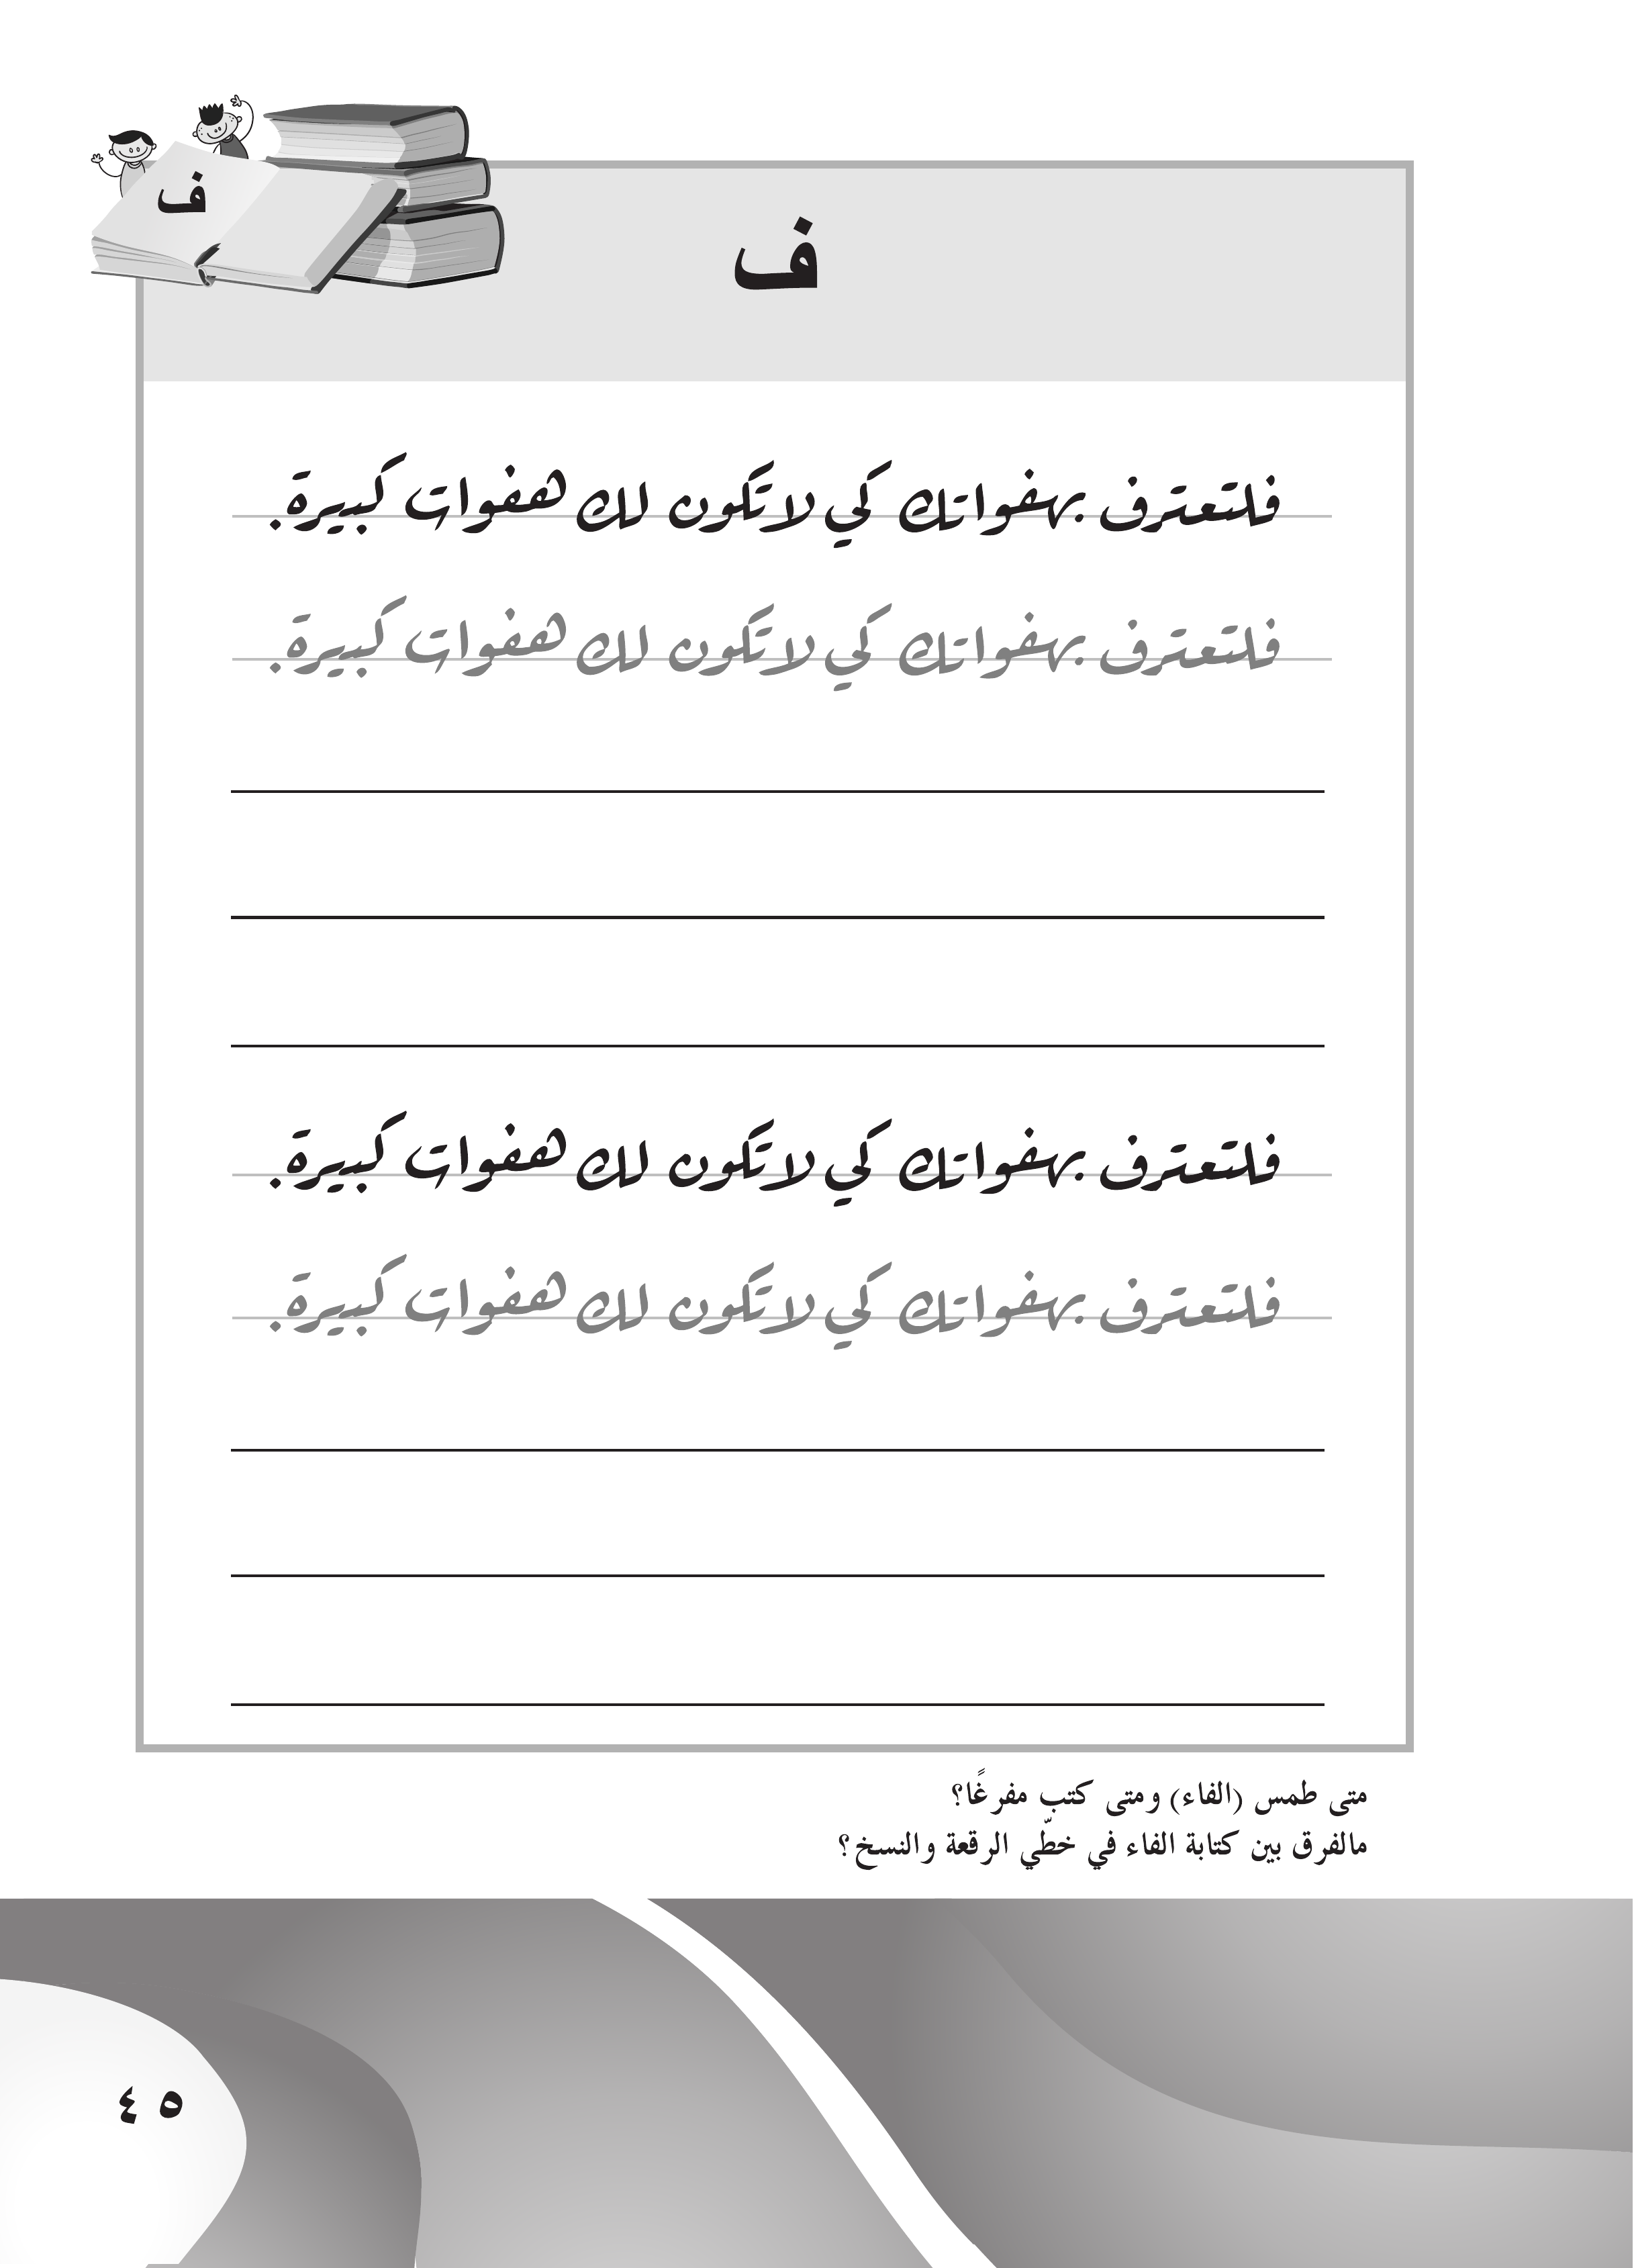 ف
ف
فلتعترف بهفواتك كي لا تكون لك هفوات كبيرة.
فلتعترف بهفواتك كي لا تكون لك هفوات كبيرة.
فلتعترف بهفواتك كي لا تكون لك هفوات كبيرة.
فلتعترف بهفواتك كي لا تكون لك هفوات كبيرة.
متى طمس (الفاء) ومتى كتب مفرغًا؟
مالفرق بين كتابة الفاء في خطّي الرقعة والنسخ؟
٤٥